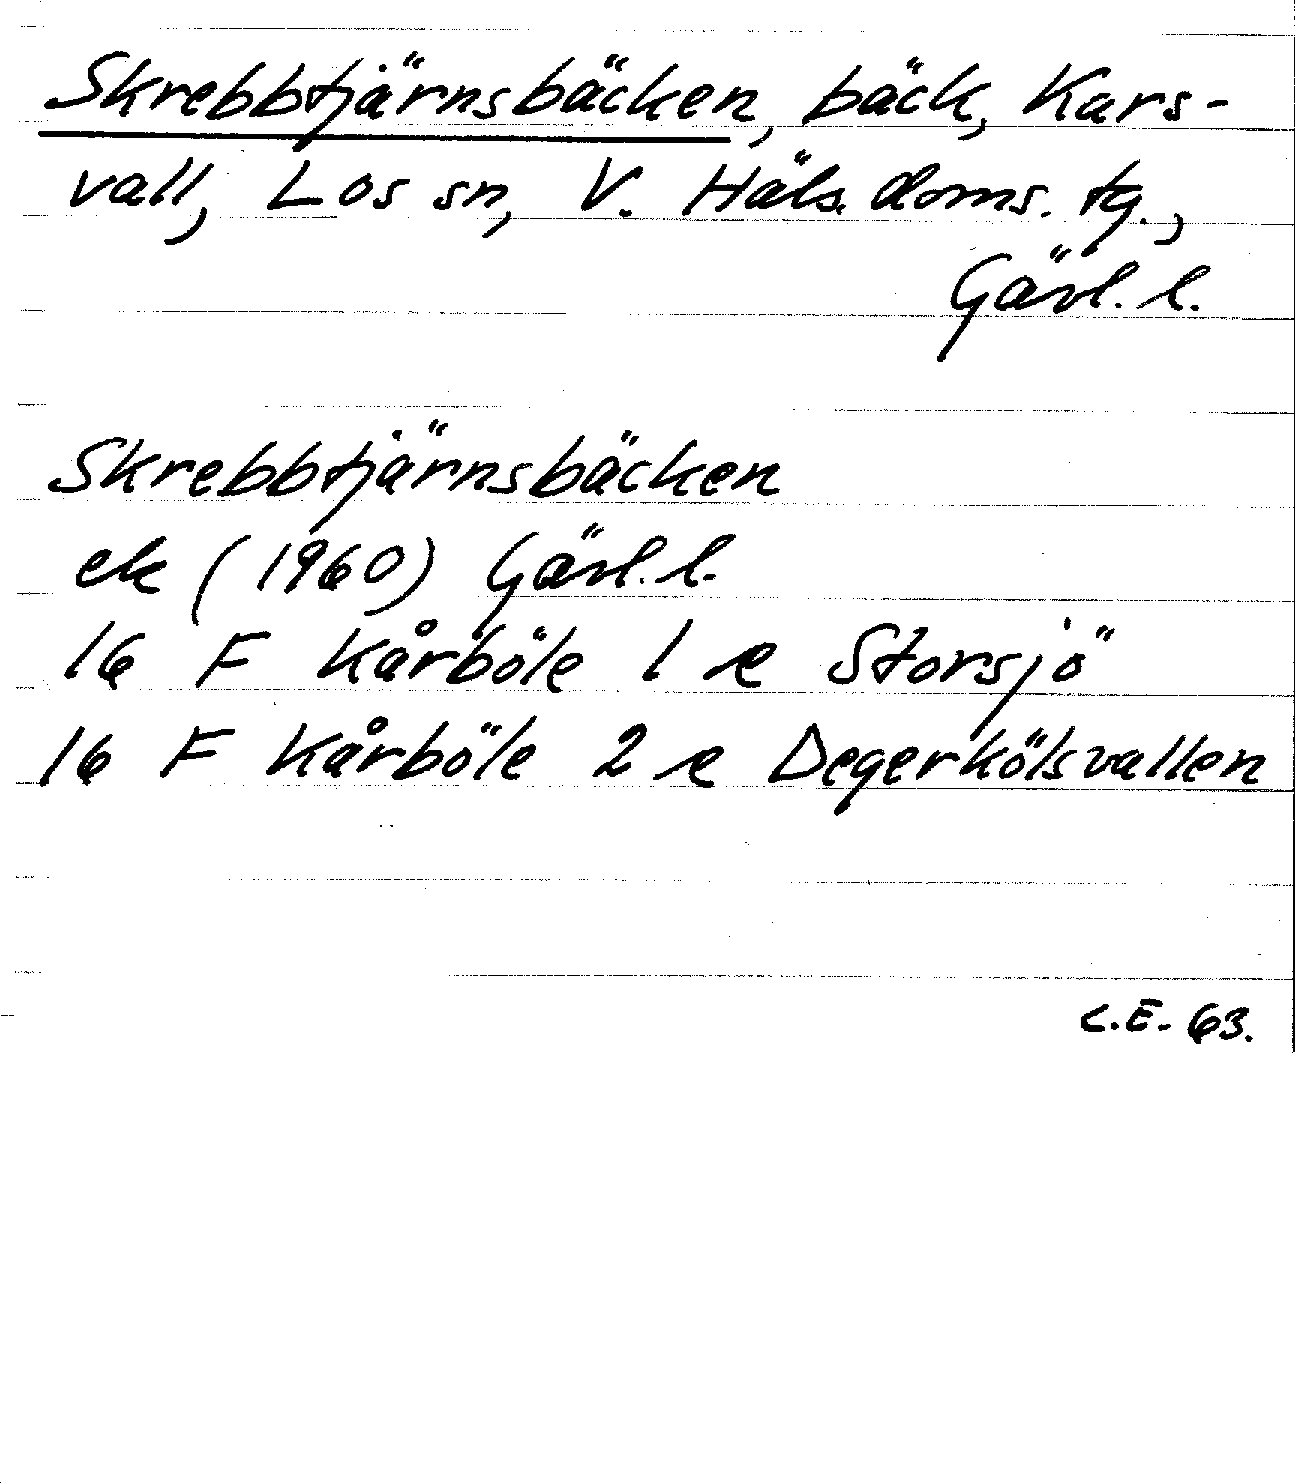 Skrebbtjärnsbäcken, bäck, Kars-
vall, Los sn, V. Häls. doms. tg.,
Gävl. l.
Skrebbtjärnsbäcken
ek (1960) Gävl. l.
16 F Kårböle 1 e Storsjö
16 F Kårböle 2 e Degerkölsvallen
C.E. 63.